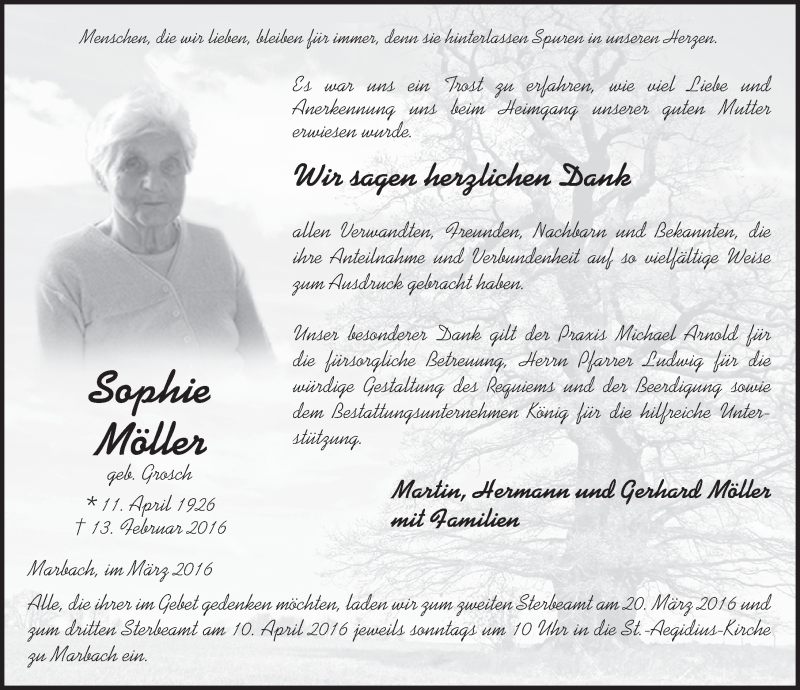 Menschen, die wir lieben, bleiben für immer, denn sie hinterlassen Spuren in unseren Herzen.
Es war uns ein Trost zu erfahren, wie viel Liebe und
Anerkennung uns beim Heimgang unserer guten Mutter
erwiesen wurde.
Wir sagen herzlichen Dank
allen Verwandten, Freunden, Nachbarn und Bekannten, die
ihre Anteilnahme und Verbundenheit auf so vielfältige Weise
zum Ausdruck gebracht haben.
Unser besonderer Dank gilt der Praxis Michael Arnold für
die fürsorgliche Betreuung, Herrn Pfarrer Ludwig für die
würdige Gestaltung des Requiems und der Beerdigung sowie
dem Bestattungsunternehmen König für die hilfreiche Unter-
stützung.
Martin, Hermann und Gerhard Möller
mit Familien
Sophie
Möller
geb. Grosch
* 11. April 1926
† 13. Februar 2016
Marbach, im März 2016
Alle, die ihrer im Gebet gedenken möchten, laden wir zum zweiten Sterbeamt am 20. März 2016 und
zum dritten Sterbeamt am 10. April 2016 jeweils sonntags um 10 Uhr in die St.-Aegidius-Kirche
zu Marbach ein.